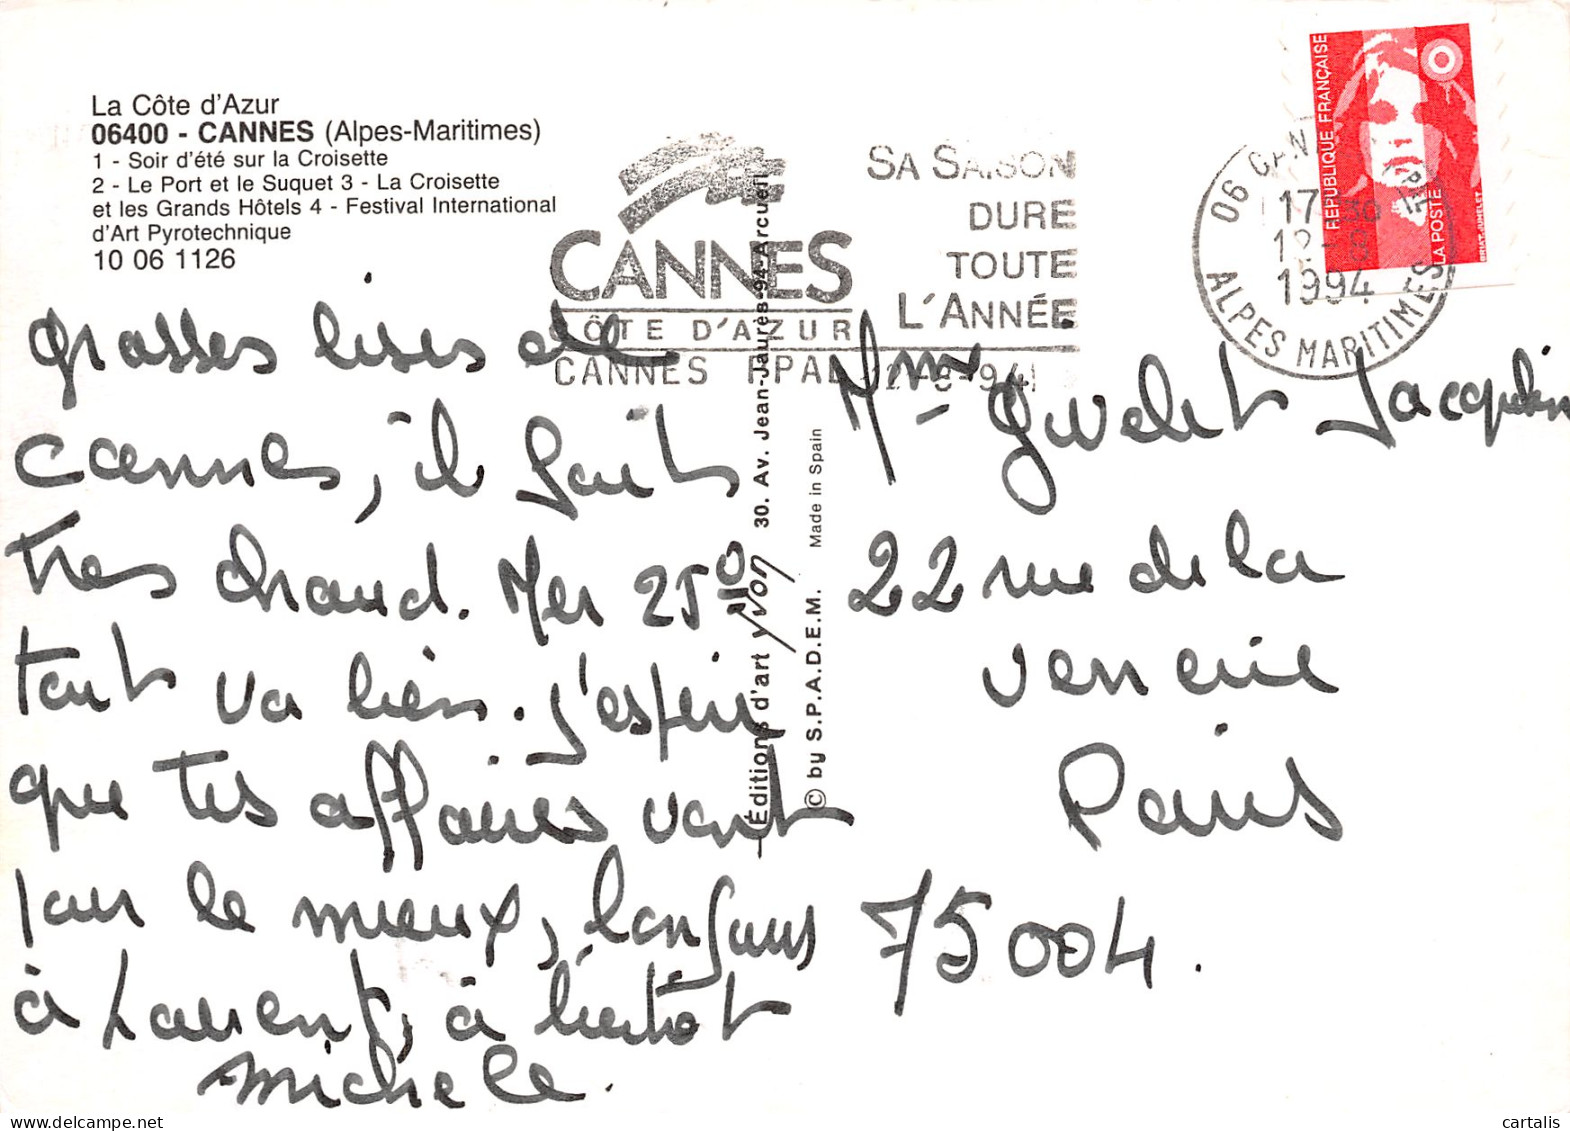 La Côte d'Azur
06400 - CANNES (Alpes-Maritimes)
1 - Soir d'été sur la Croisette
2 - Le Port et le Suquet 3 - La Croisette
et les Grands Hôtels 4 - Festival International
d'Art Pyrotechnique
10 06 1126
CANNES
CÔTE D'AZUR
CANNES PPAL
SA SAISON
DURE
TOUTE
L'ANNÉE
06 CAN
17
1994
ALPES MARITIMES
RÉPUBLIQUE FRANÇAISE
LA POSTE
grosses bises de
Cannes, il fait
très chaud. Mer 25°
tout va bien. j'espère
que tes affaires vont
pour le mieux, bonjour
à Laurent, à bientôt
Michèle.
Éditions d'art yvon 30. Av. Jean-Jaurès-94-Arcueil
© by S.P.A.D.E.M. Made in Spain
Mme Jacquelin
22 rue de la
verrerie
Paris
75004.
cartalis